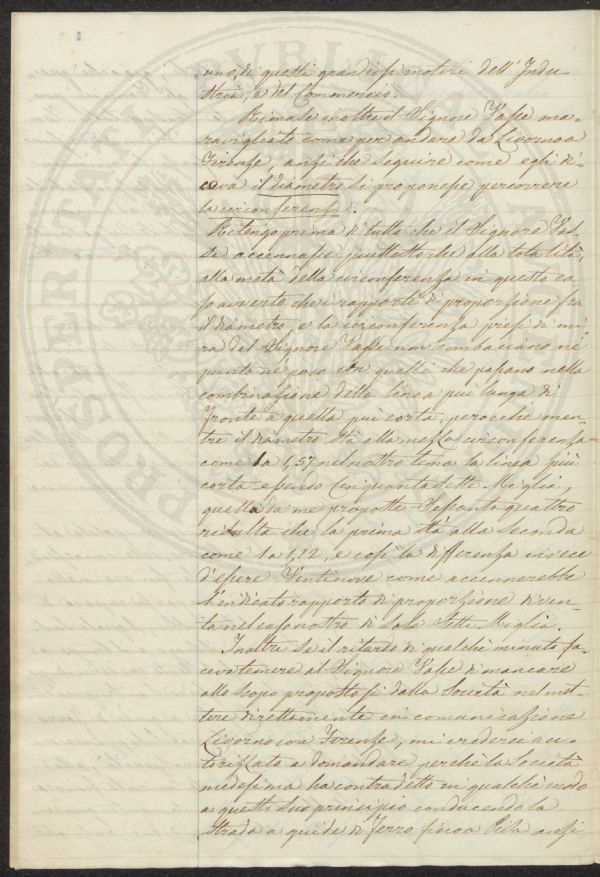 uno, di questi grandiosi motori dell'Indu-
stria, e del Commercio.
Rimase inoltre il Signore Vasse ma-
ravigliato come per andare da Livorno a
Firenze, anzi che seguire come egli di-
ceva il diametro si proponesse percorrere
la circonferenza.
Ritengo prima di tutto che il Signore Vas-
se accennasse piuttosto che alla totalità,
alla metà della circonferenza in questo ca-
so avverto che i rapporti di proporzione fra
il diametro, e la circonferenza presi di mi-
ra dal Signore Vasse non combaciano nè
punto ne poco con quelli che passano nella
combinazione della linea più lunga di
fronte a quella più corta, perocchè men-
tre il diametro stà alla mezza circonferenza
come 1 a 1,57 nel nostro tema la linea più
corta essendo Cinquantasette Miglia
quella da me proposta Sessantaquattro
risulta che la prima stà alla seconda
come 1 a 1,12, e così la differenza invece
d'essere Ventinove come accennerebbe
l'indicato rapporto di proporzione diven-
ta nel caso nostro di sole Sette Miglia.
Inoltre se il ritardo di qualche minuto fa-
ceva temere al Signore Vasse di mancare
allo scopo propostosi dalla Società nel met-
tere direttamente in comunicazione
Livorno con Firenze, mi crederei au-
torizzato a domandare perchè la Società
medesima ha contradetto in qualche modo
a questo suo principio conducendo la
Strada a guide di Ferro fino a Pisa anzi